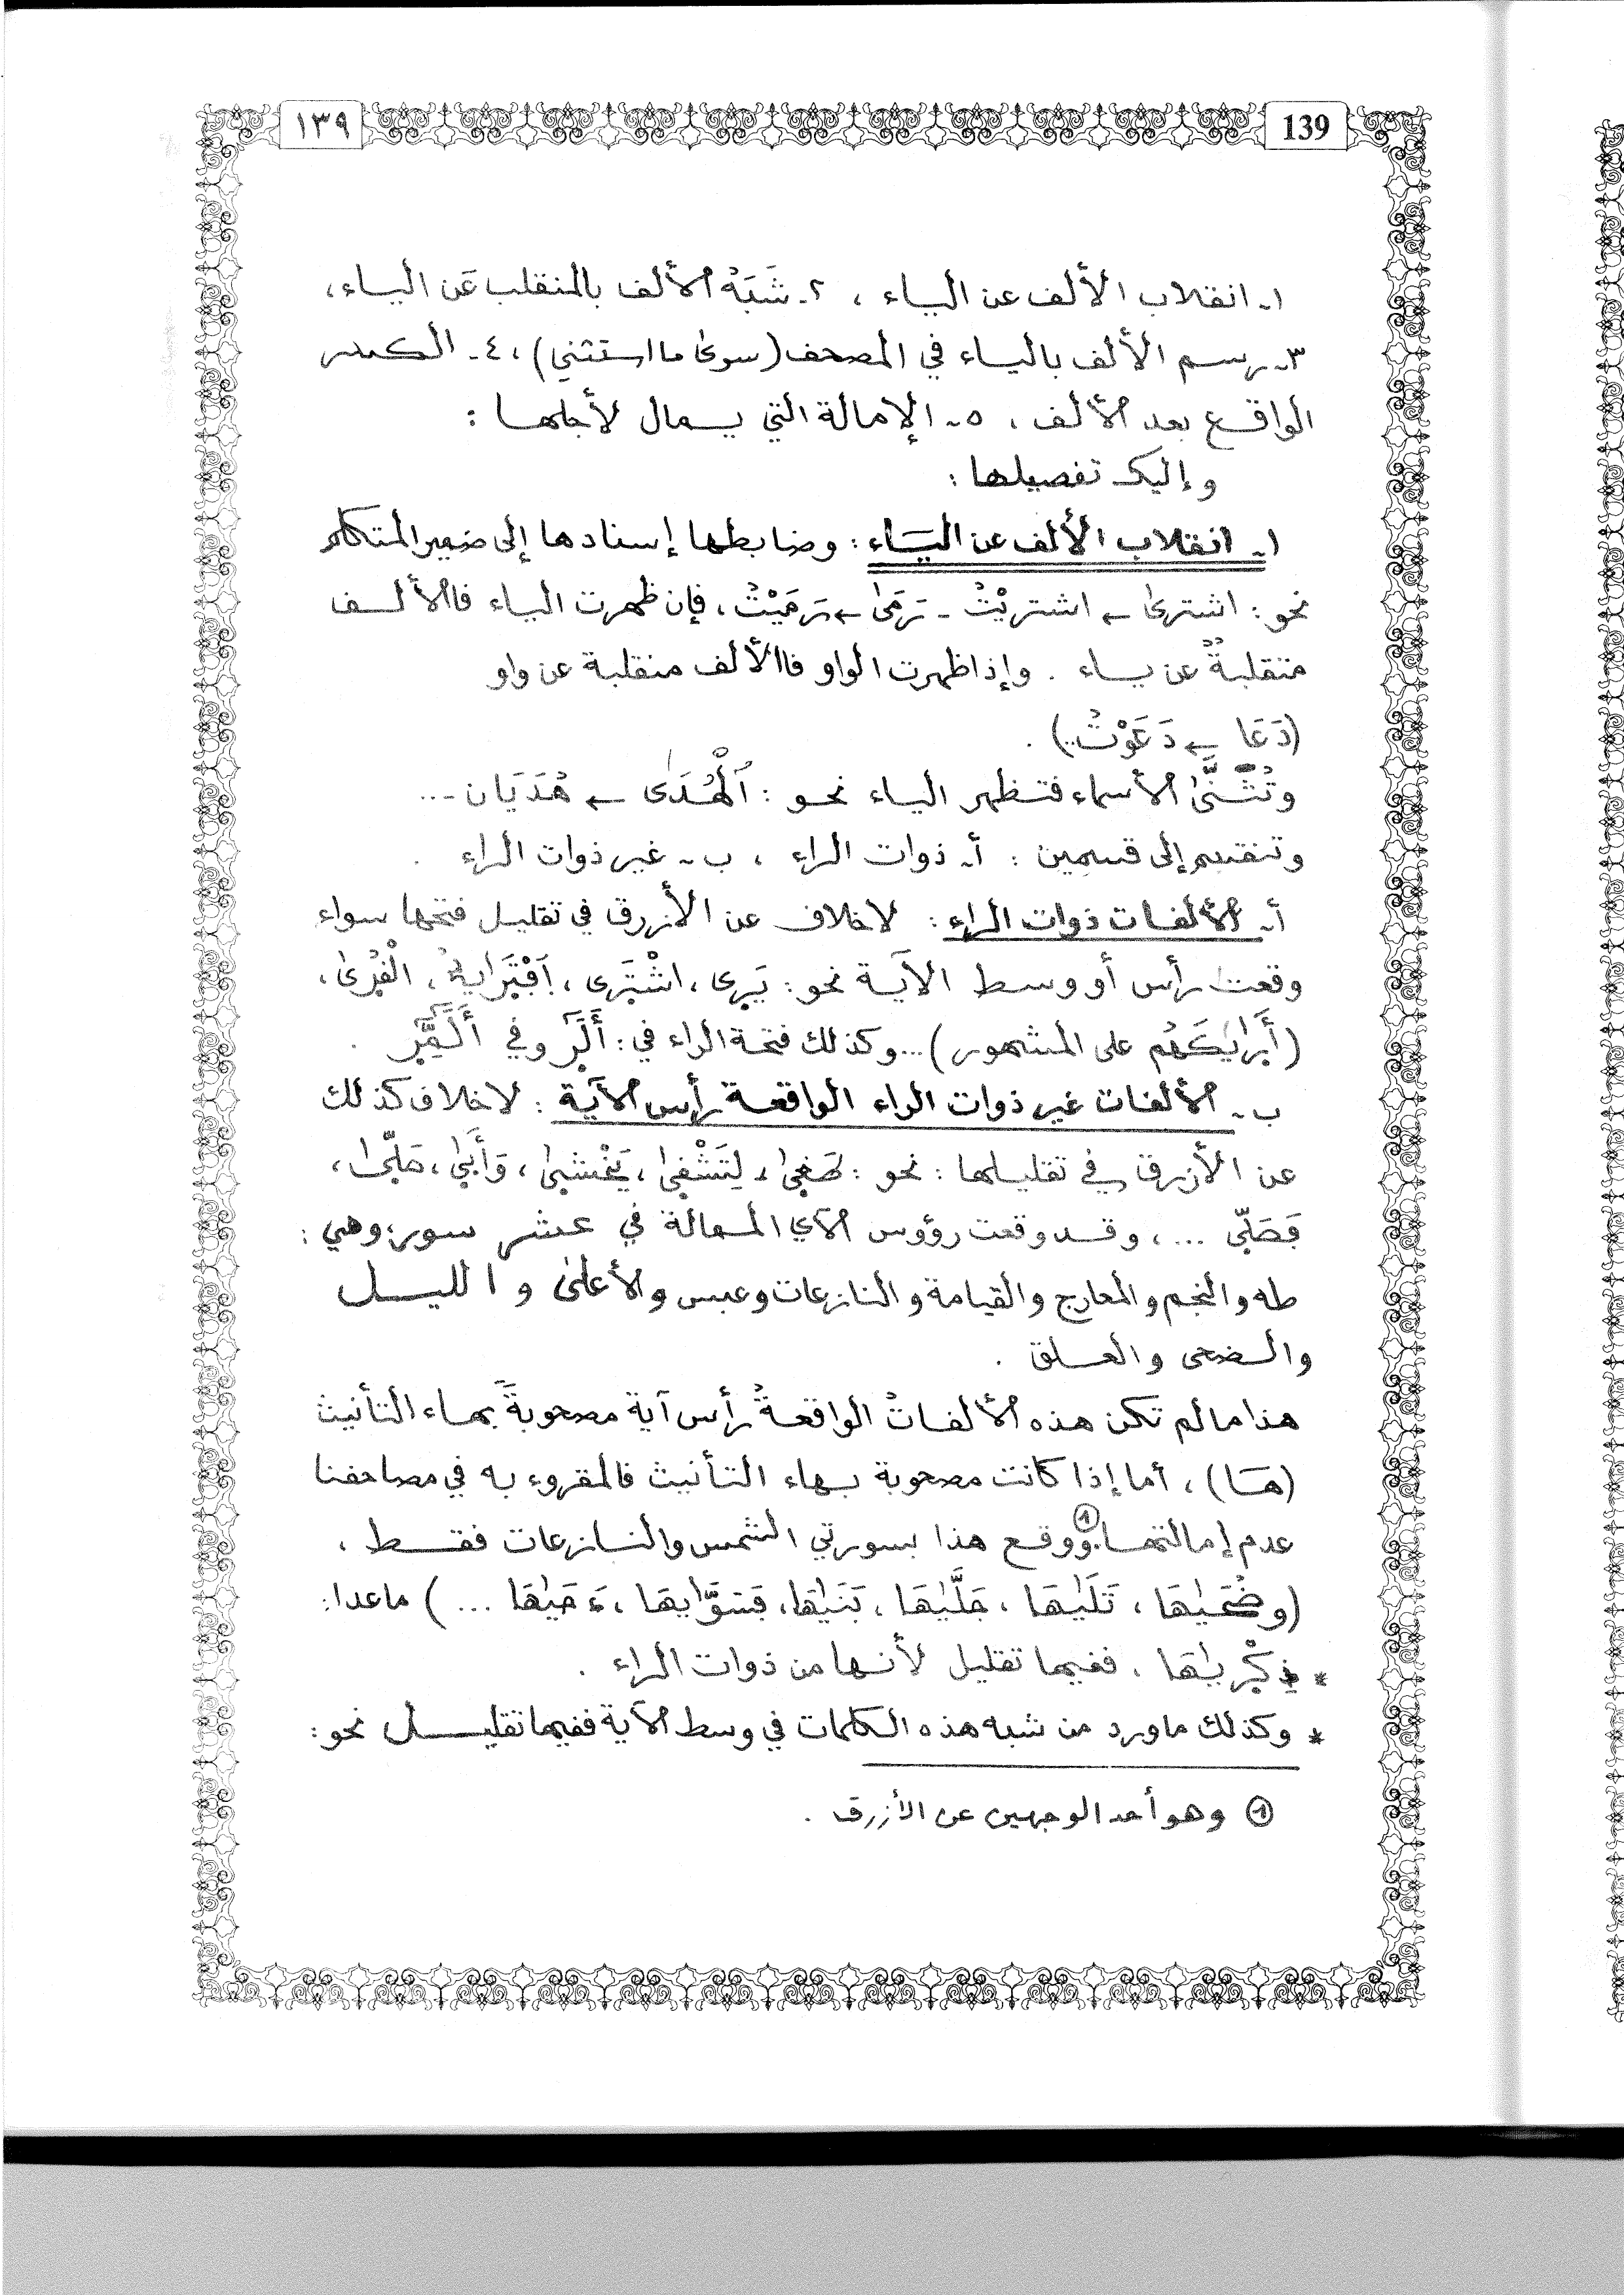 ١٣٩
139
١- انقلاب الألف عن الياء ، ٢- شَبَهُ الألف بالمنقلب عَن الياء،
٣- رسم الألف بالياء في المصحف (سوى ما استثني) ، ٤- الكسر
الواقع بعد الألف ، ٥- الإمالة التي يمال لأجلها :
وإليك تفصيلها :
١- انقلاب الألف عن اليَاء : وضابطها إسنادها إلى ضمير المتكلم
نحو : اشترى ← اشتريْتُ - رَمَى ← رَمَيْتُ ، فإن ظهرت الياء فالألف
منقلبةٌ عن ياء . وإذا ظهرت الواو فالألف منقلبة عن واو
(دَعَا ← دَعَوْتُ..) .
وتُثَنَّى الأسماء فتظهر الياء نحو : اَلْهُدَى ← هُدَيَان ...
وتنقسم إلى قسمين : أ- ذوات الراء ، ب- غير ذوات الراء .
أ- الألفات ذوات الراء : لا خلاف عن الأزرق في تقليل فتحها سواء
وقعت رأس أو وسط الآية نحو : يَرى ، اشْتَرى ، اَفْتَرَايهُ ، الْقُرى ،
(أَرَايٰكَهُم على المشهور) ... وكذلك فتحة الراء في : أَلَٓر وفي أَلَٓمِّٓر .
ب- الألفات غير ذوات الراء الواقعة رأس الآية : لا خلاف كذلك
عن الأزرق في تقليلها : نحو : طَغى ، لِتَشْقى ، يَخْشى ، وَأَبى ، صَلّى ،
فَصَلّى ... ، وقد وقعت رؤوس الآي الممالة في عشر سور ; وهي :
طه والنجم والمعارج والقيامة والنازعات وعبس والأعلى والليل
والضحى والعلق .
هذا ما لم تكن هذه الألفاتُ الواقعةُ رأس آية مصحوبةً بهاء التأنيث
(هَا) ، أما إذا كانت مصحوبة بهاء التأنيث فالمقروء به في مصاحفنا
عدم إمالتها.① ووقع هذا بسورتي الشمس والنازعات فقط ،
(وضُحَيٰهَا ، تَلَيٰهَا ، جَلَّيٰهَا ، بَنَيٰهَا ، فَسَوَّايهَا ، دَحَيٰهَا ...) ماعدا :
* ذِكْريٰهَا ، ففيها تقليل لأنها من ذوات الراء .
* وكذلك ما ورد من شبه هذه الكلمات في وسط الآية ففيها تقليل نحو :
① وهو أحد الوجهين عن الأزرق .